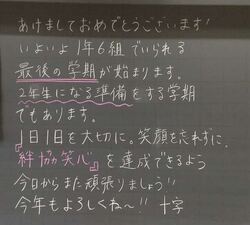 あけましておめでとうございます!
いよいよ1年6組でいられる
最後の学期が始まります。
2年生になる準備をする学期
でもあります。
1日1日を大切に。笑顔を忘れずに。
『絆協笑心』を達成できるよう
今日からまた頑張りましょう!!
今年もよろしくね〜!! 十字